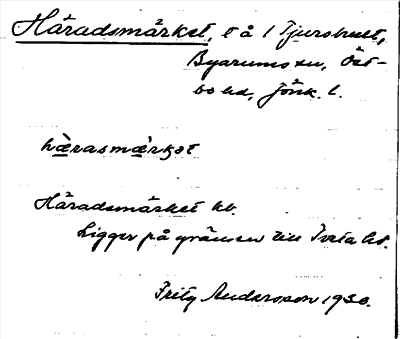 Häradsmärket, t å 1 Tjurshult,
Byarums sn, Öst-
bo hd, Jönk. l.
hæ̀rasmæ̀rkət
Häradsmärket kb.
Ligger på gränsen till Tveta hd.
Fritz Andersson 1930.